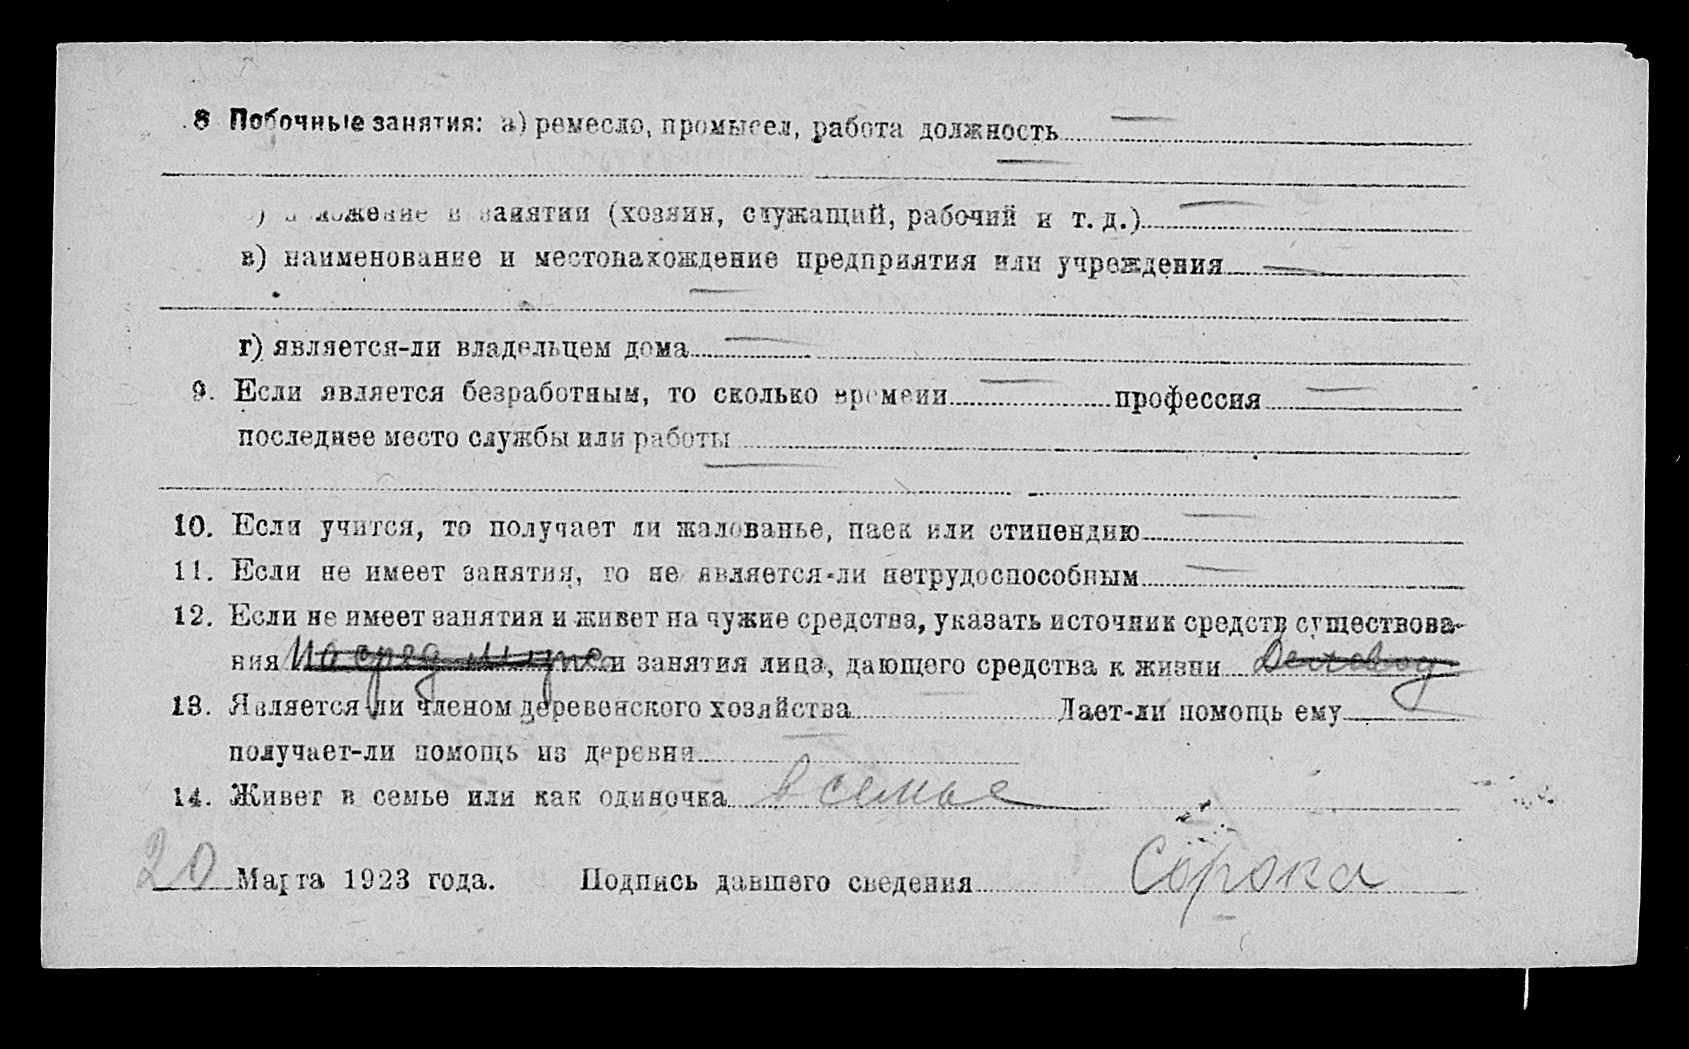 8 Побочные занятия: а) ремесло, промысел, работа должность
) ложение в занятии (хозяин, служащий, рабочий и т. д.)
в) наименование и местонахождение предприятия или учреждения
г) является-ли владельцем дома
9. Если является безработным, то сколько времени профессия
последнее место службы или работы
10. Если учится, то получает ли жалованье, паек или стипендию
11. Если не имеет занятия, то не является-ли нетрудоспособным
12. Если не имеет занятия и живет на чужие средства, указать источник средств существова-
ния На сред мужа и занятия лица, дающего средства к жизни Деловод
13. Является ли членом деревенского хозяйства Дает-ли помощь ему
получает-ли помощь из деревни
14. Живет в семье или как одиночка в семье
20 Марта 1923 года. Подпись давшего сведения Сорока